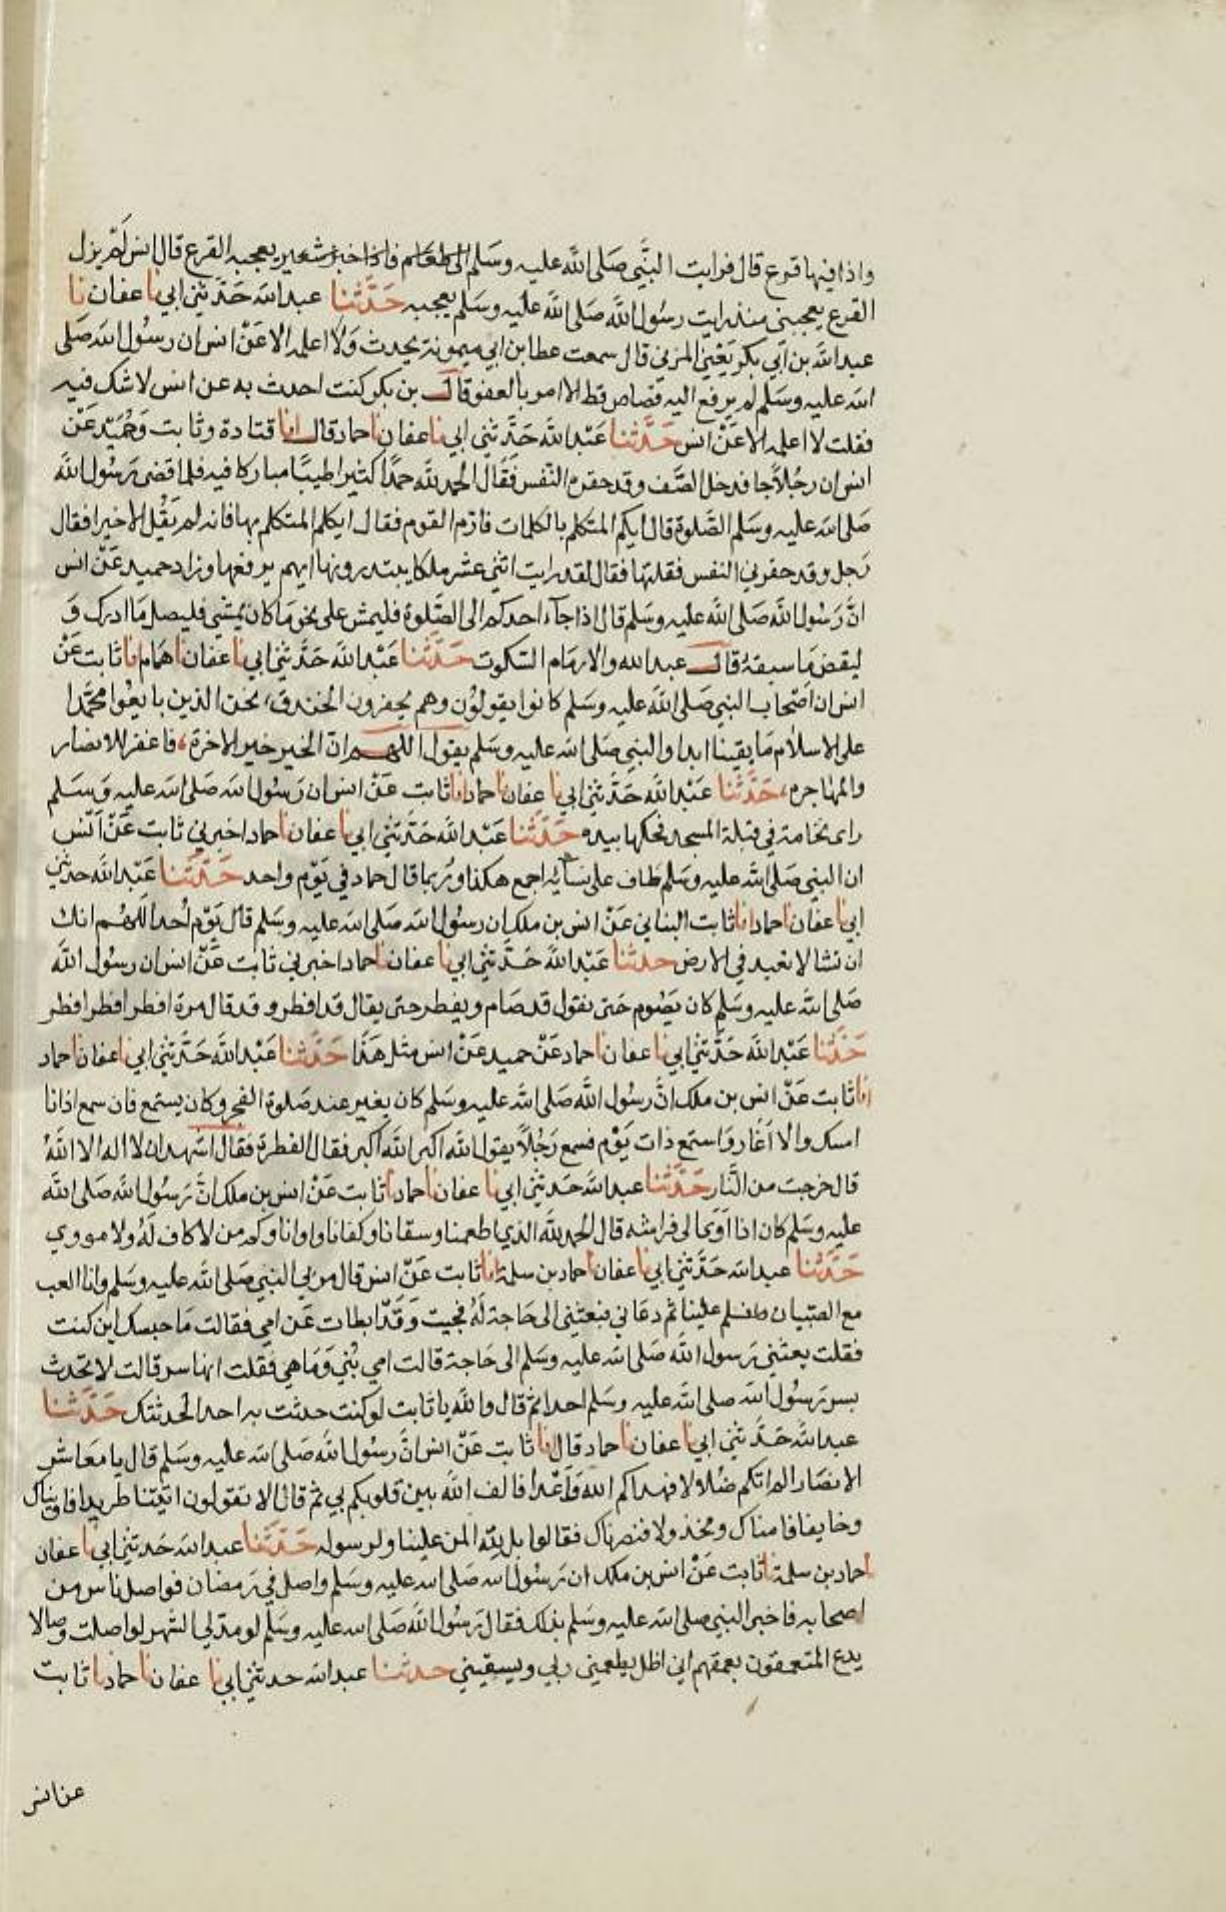 واذا فيها قرع قال فرايت النبي صلى الله عليه وسلم يعجبه القرع قال انس لم يزل
القرع يعجبني منذ رايت رسول الله صلى الله عليه وسلم يعجبه حدثنا عبد الله حدثني ابي نا عفان نا
عبد الله بن ابي بكر يعني المزني قال سمعت عطا بن ابي ميمونة يحدث ولا اعلمه الا عن انس ان رسول الله صلى
الله عليه وسلم لم يرفع اليه قصاص قط الا امر بالعفو قال بن بكر كنت احدث به عن انس لا شك فيه
فقلت لا اعلمه الا عن انس حدثنا عبد الله حدثني ابي نا عفان نا حماد قال انا قتادة وثابت وحميد عن
انس ان رجلا جا فدخل الصف وقد حفزه النفس فقال الحمد لله حمدا كثيرا طيبا مباركا فيه فلما قضى رسول الله
صلى الله عليه وسلم الصلوة قال ايكم المتكلم بالكلمات فارم القوم فقال ايكم المتكلم بها فانه لم يقل الا خيرا فقال
رجل وقد حفزني النفس فقلتها فقال لقد رايت اثني عشر ملكا يبتدرونها ايهم يرفعها وزاد حميد عن انس
ان رسول الله صلى الله عليه وسلم قال اذا جآء احدكم الى الصلوة فليمش على نحو ما كان يمشي فليصل ما ادرك و
ليقض ما سبقه قال عبد الله والارمام السكوت حدثنا عبد الله حدثني ابي نا عفان نا همام انا ثابت عن
انس ان اصحاب النبي صلى الله عليه وسلم كانوا يقولون وهم يحفرون الخندق، نحن الذين بايعوا محمدا
على الاسلام ما بقينا ابدا والنبي صلى الله عليه وسلم يقول اللهم ان الخير خير الاخرة، فاغفر للانصار
والمهاجره، حدثنا عبد الله حدثني ابي نا عفان نا حماد انا ثابت عن انس ان رسول الله صلى الله عليه وسلم
راى نخامة في قبلة المسجد فحكها بيده حدثنا عبد الله حدثني ابي نا عفان نا حماد اخبرني ثابت عن انس
ان النبي صلى الله عليه وسلم طاف على نسآئه اجمع هكذا وربما قال حماد في يوم واحد حدثنا عبد الله حدثني
ابي نا عفان نا حماد انا ثابت البناني عن انس بن ملك ان رسول الله صلى الله عليه وسلم قال يوم احد اللهم انك
ان تشا لا تعبد في الارض حدثنا عبد الله حدثني ابي نا عفان نا حماد اخبرني ثابت عن انس ان رسول الله
صلى الله عليه وسلم كان يصوم حتى نقول قد صام ويفطر حتى يقال قد افطر وقد قال مرة افطر افطر افطر
حدثنا عبد الله حدثني ابي نا عفان نا حماد عن حميد عن انس مثل هذا حدثنا عبد الله حدثني ابي نا عفان نا حماد
انا ثابت عن انس بن ملك ان رسول الله صلى الله عليه وسلم كان يغير عند صلوة الفجر وكان يستمع فان سمع اذانا
امسك والا اغار واستمع ذات يوم فسمع رجلا يقول الله اكبر الله اكبر فقال الفطرة فقال اشهد ان لا اله الا الله
قال خرجت من النار حدثنا عبد الله حدثني ابي نا عفان نا حماد انا ثابت عن انس بن ملك ان رسول الله صلى الله
عليه وسلم كان اذا اوى الى فراشه قال الحمد لله الذي اطعمنا وسقانا وكفانا واوانا وكم من لا كاف له ولا مووي
حدثنا عبد الله حدثني ابي نا عفان نا حماد بن سلمة انا ثابت عن انس قال مر بي النبي صلى الله عليه وسلم وانا العب
مع الصبيان فسلم علينا ثم دعاني فبعثني الى حاجة له فجيت وقد ابطات عن امي فقالت ما حبسك اين كنت
فقلت بعثني رسول الله صلى الله عليه وسلم الى حاجة قالت امي بني وما هي فقلت انها سر قالت لا تحدث
بسر رسول الله صلى الله عليه وسلم احدا ثم قال والله يا ثابت لو كنت حدثت به احدا لحدثتك حدثنا
عبد الله حدثني ابي نا عفان نا حماد قال انا ثابت عن انس ان رسول الله صلى الله عليه وسلم قال يا معاشر
الانصار الم اتكم ضلالا فهداكم الله واعدا فالف الله بين قلوبكم بي ثم قال الا تقولون اتيتنا طريدا فاويناك
وخايفا فامناك ومخذولا فنصرناك فقالوا بل لله المن علينا ولرسوله حدثنا عبد الله حدثني ابي نا عفان
نا حماد بن سلمة انا ثابت عن انس بن ملك ان رسول الله صلى الله عليه وسلم واصل في رمضان فواصل ناس من
اصحابه فاخبر النبي صلى الله عليه وسلم بذلك فقال رسول الله صلى الله عليه وسلم لو مد لي الشهر لواصلت وصالا
يدع المتعمقون تعمقهم اني اظل يطعمني ربي ويسقيني حدثنا عبد الله حدثني ابي نا عفان نا حماد انا ثابت
عن انس